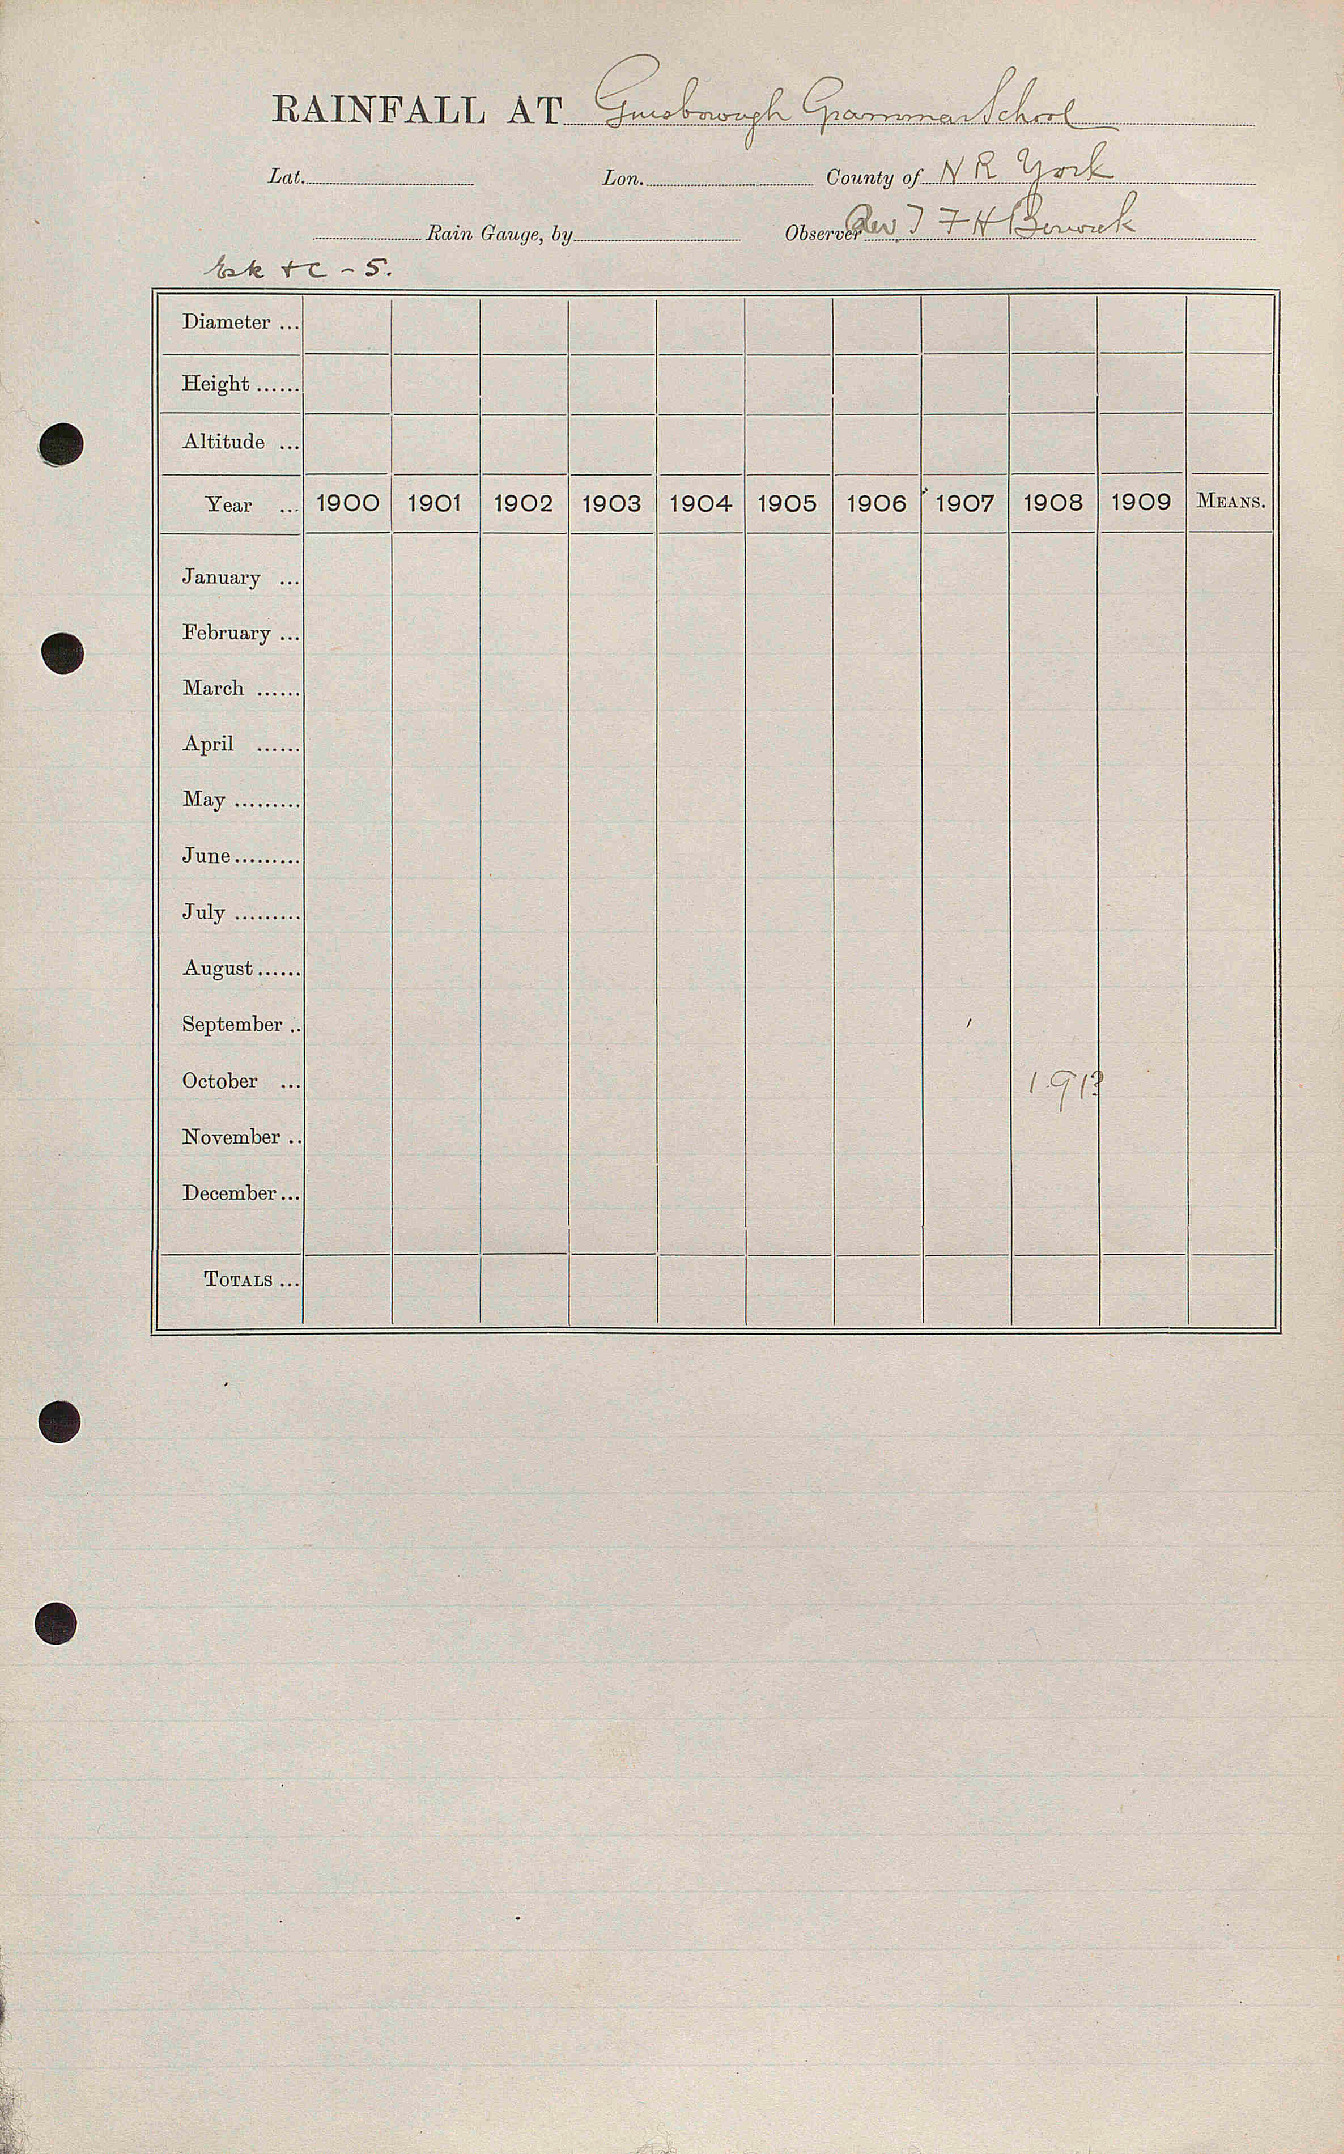 RAINFALL AT Guisborough Grammar School
Lat. Lon. County of N R York
Rain Gauge, by Observer Rev. T F H Berwick
Esk +c - 5.
Diameter ...
Height ......
Altitude ...
Year ... 1900 1901 1902 1903 1904 1905 1906 1907 1908 1909 MEANS.
January ...
February ...
March ......
April ......
May .........
June .........
July .........
August ......
September ..
October ... 1.91?
November ..
December ...
TOTALS ...